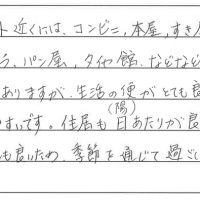 ト近くには、コンビニ、本屋、すき
う、パン屋、タイヤ館、などなど
ありますが、生活の便がとても良
やすいです。住居も日(陽)あたりが良
も良いため、季節を通じて過ごし